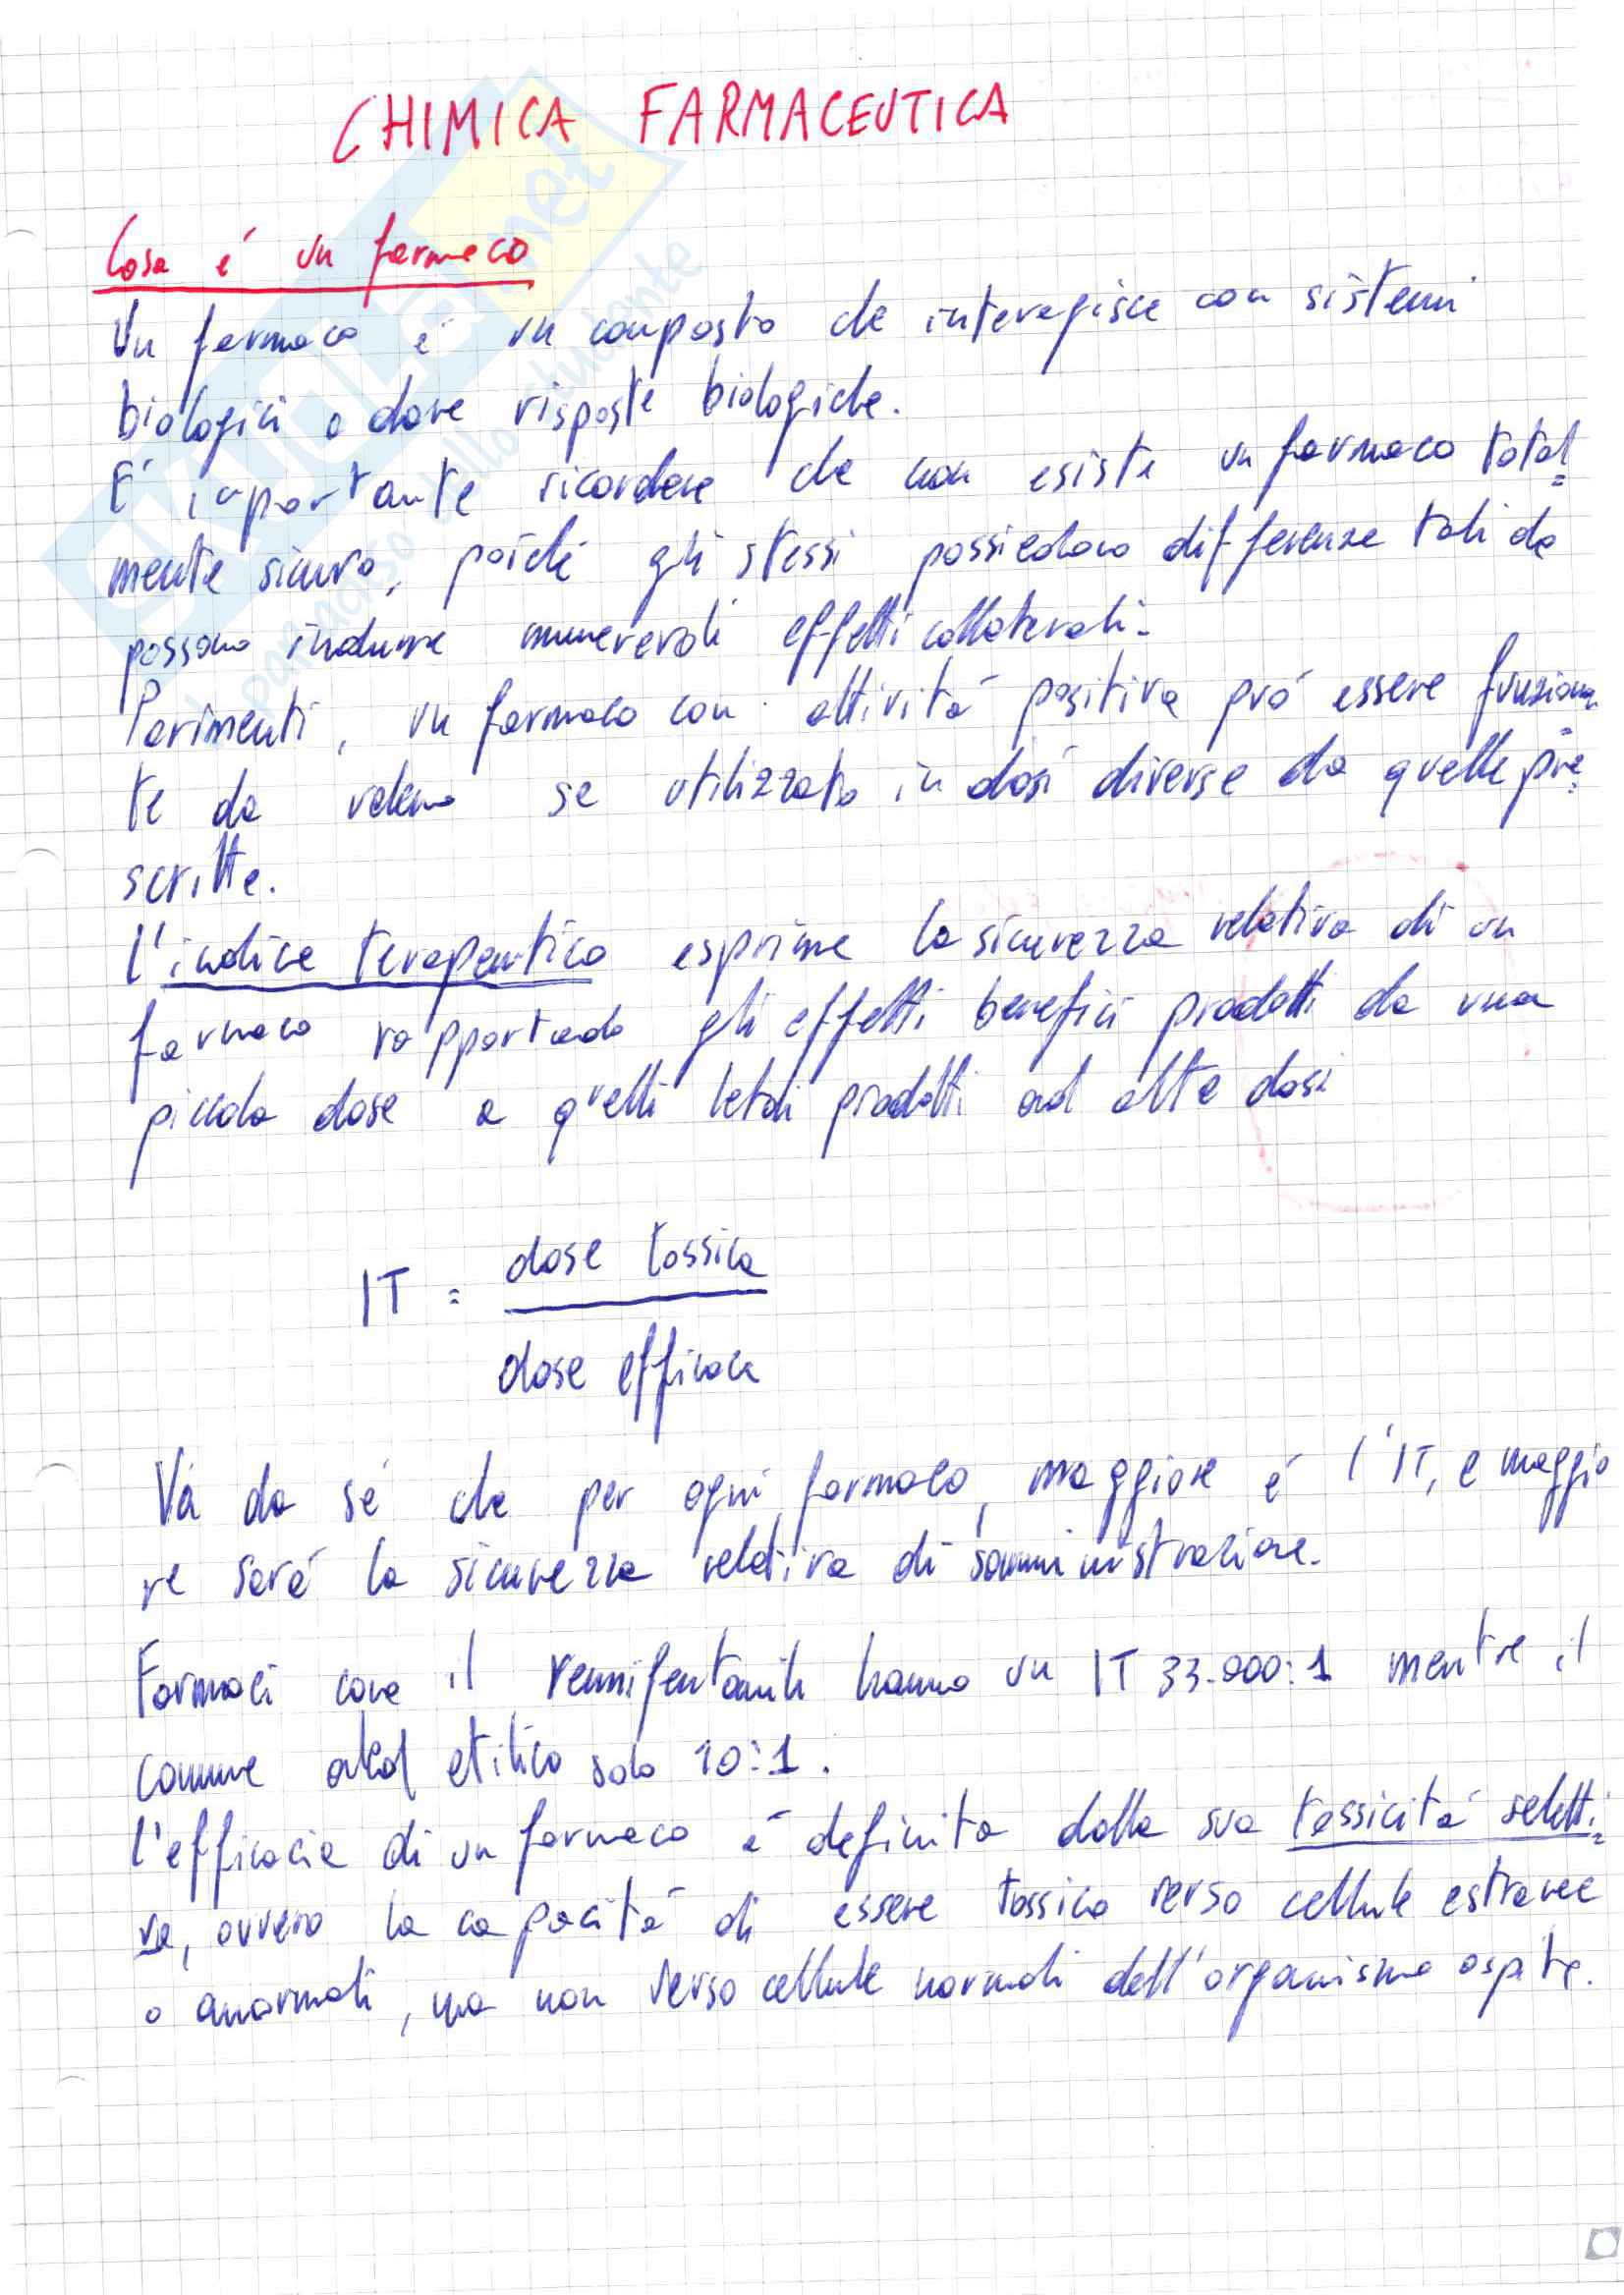 CHIMICA FARMACEUTICA
Cosa é un farmaco
Un farmaco é un composto che interagisce con sistemi
biologici a dare risposte biologiche.
E' importante ricordare che non esiste un farmaco total=
mente sicuro, poiché gli stessi possiedono differenze tali da
possono indurre innumerevoli effetti collaterali.
Parimenti, un farmaco con attivitá positiva puó essere funzionan
te da veleno se utilizzato in dosi diverse da quelle pre=
scritte.
L'indice terapeutico esprime la sicurezza relativa di un
farmaco rapportando gli effetti benefici prodotti da una
piccola dose a quelli letali prodotti ad alte dosi
IT = dose tossica
dose efficace
Vá da sé che per ogni farmaco, maggiore é l'IT, e maggio
re sará la sicurezza relativa di somministrazione.
Farmaci come il remifentanil hanno un IT 33.000:1 mentre il
comune alcol etilico solo 10:1.
L'efficacia di un farmaco é definita dalla sua tossicitá seletti=
va, ovvero la capacitá di essere tossico verso cellule estranee
o anormali, ma non verso cellule normali dell'organismo ospite.
skuola.net
il paradiso dello studente